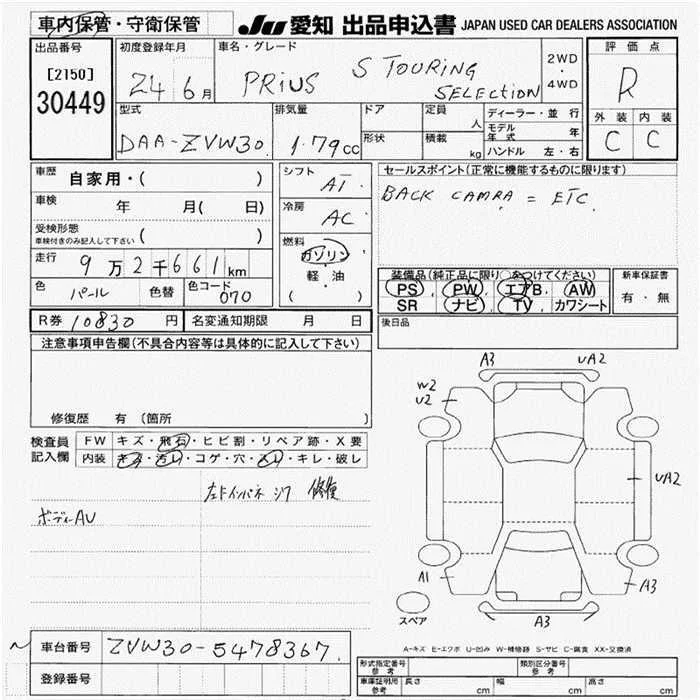 車内保管・守衛保管 JU 愛知 出品申込書 JAPAN USED CAR DEALERS ASSOCIATION
出品番号
[2150]
30449
初度登録年月
24 6月
車名・グレード
PRiUS S TOURiNG SELECTiON
2WD
・
4WD
評価点
R
外装 内装
C C
型式
DAA-ZVW30.
排気量
1.79cc
ドア
形状
定員
人
積載
kg
ディーラー・並行
モデル年式 年
ハンドル 左・右
車歴 自家用・( )
車検 年 月( 日)
受検形態
車検付きのみ記入して下さい ( )
走行 9万2千661km
色 パール 色替 色コード 070
シフト AT
冷房 AC
燃料
ガソリン
軽・油
( )
セールスポイント(正常に機能するものに限ります)
BACK CAMRA = ETC.
装備品(純正品に限り○をつけてください)
PS PW エアB AW
SR ナビ TV カワシート
新車保証書
有・無
R券 10830 円 名変通知期限 月 日
後日品
注意事項申告欄(不具合内容等は具体的に記入して下さい)
修復歴 有 (箇所 )
検査員
記入欄
FW キズ・飛石・ヒビ割・リペア跡・X要
内装 キズ・汚レ・コゲ・穴・スレ・キレ・破レ
修復
ボディーAU
A3 UA2
W2
U2
UA2
A1
A3
A3
スペア
A-キズ E-エクボ U-凹み W-補修跡 S-サビ C-腐食 XX-交換済
~ 車台番号 ZVW30-5478367.
登録番号
形式指定番号
参考
類別区分番号
参考
車庫証明用
参考
長さ cm 幅 cm 高さ cm